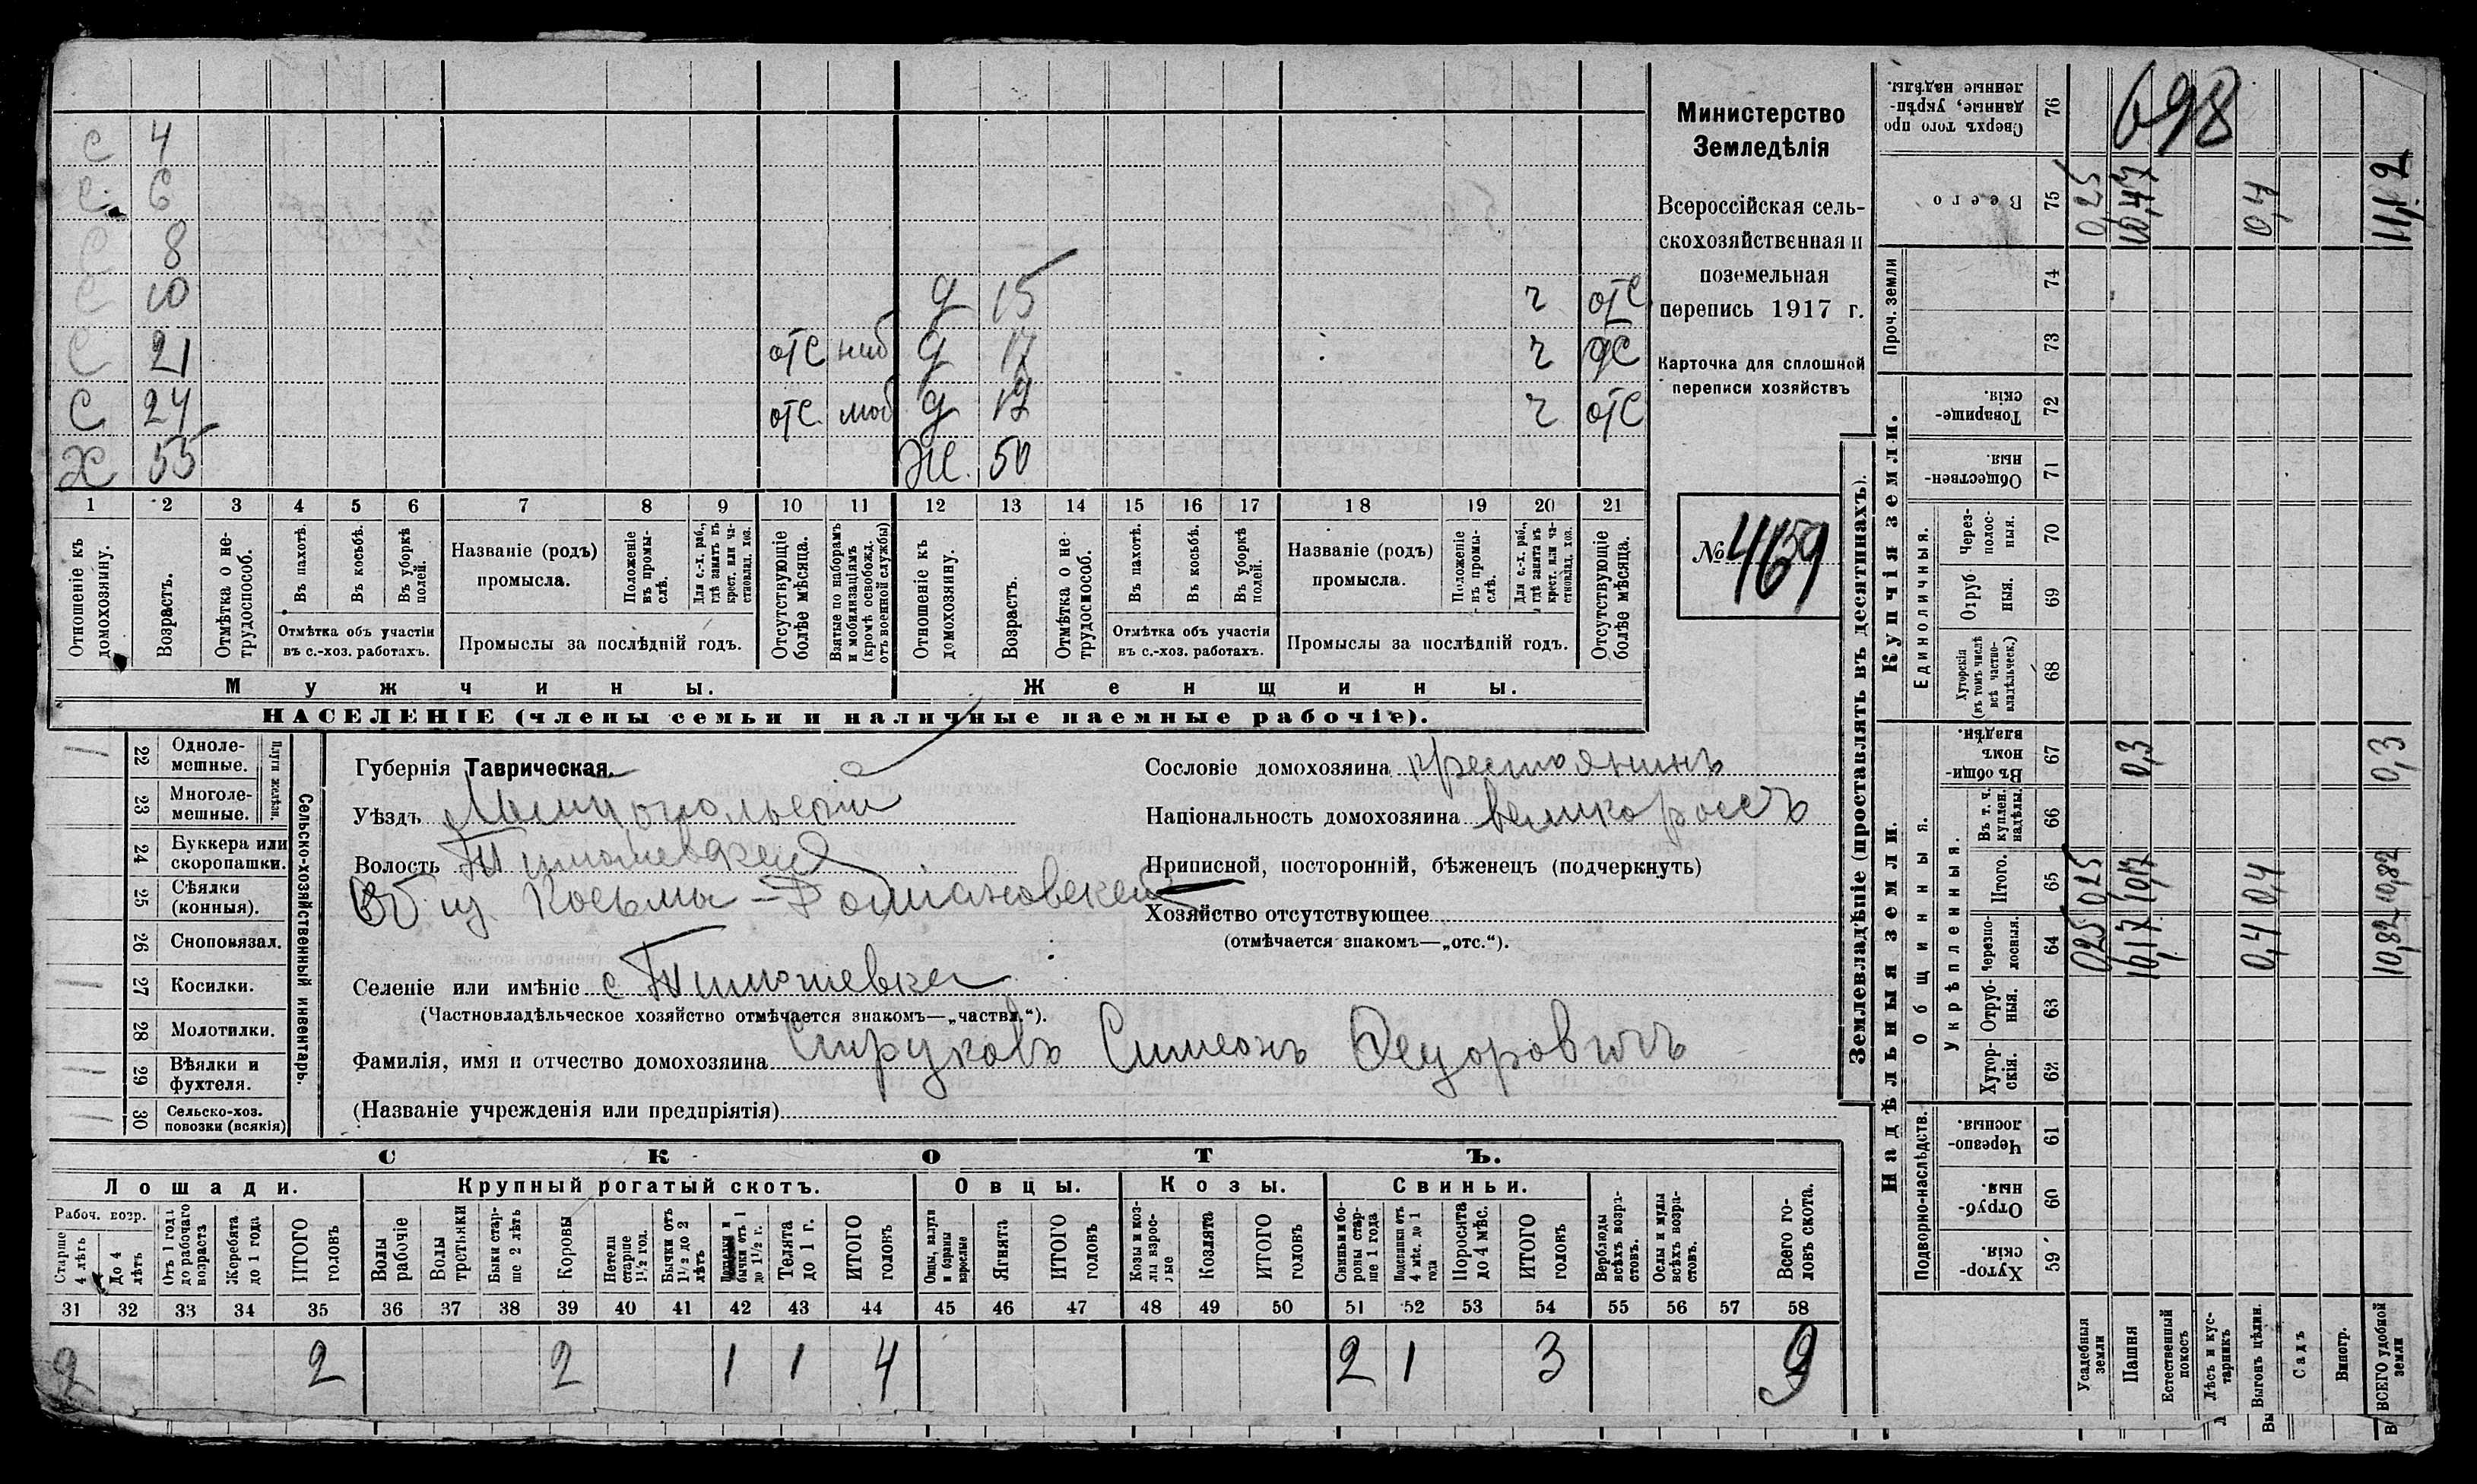 Министерство
Земледѣлія
Всероссійская сель-
скохозяйственная и
поземельная
перепись 1917 г.
Карточка для сплошной
переписи хозяйствъ
№ 4659
с 4
с 6
с 8
с 10 д 15 ч отс
с 21 отс д 17 ч отс
с 24 отс моб д 19 ч отс
Х 55 Ж. 50
1 2 3 4 5 6 7 8 9 10 11 12 13 14 15 16 17 18 19 20 21
Отношеніе къ домохозяину.
Возрастъ.
Отмѣтка о не-трудоспособ.
Въ пахотѣ.
Въ косьбѣ.
Въ уборкѣ полей.
Отмѣтка объ участіи
въ с.-хоз. работахъ.
Названіе (родъ)
промысла.
Положеніе въ промы-слѣ.
Для с.-х. раб., гдѣ занятъ въ крест. или ча-стновлад. хоз.
Промыслы за послѣдній годъ.
Отсутствующіе болѣе мѣсяца.
Взятые по наборамъ и мобилизаціямъ (кромѣ освобожд. отъ военной службы)
Отношеніе къ домохозяину.
Возрастъ.
Отмѣтка о не-трудоспособ.
Въ пахотѣ.
Въ косьбѣ.
Въ уборкѣ полей.
Отмѣтка объ участіи
въ с.-хоз. работахъ.
Названіе (родъ)
промысла.
Положеніе въ промы-слѣ.
Для с.-х. раб., гдѣ занята въ крест. или ча-стновлад. хоз.
Промыслы за послѣдній годъ.
Отсутствующіе болѣе мѣсяца.
Мужчины. Женщины.
НАСЕЛЕНІЕ (члены семьи и наличные наемные рабочіе).
Сельско-хозяйственный инвентарь.
Плуги желѣзн.
22 Одноле-мешные. 1
23 Многоле-мешные.
24 Буккера или скоропашки. 1
25 Сѣялки (конныя).
26 Сноповязал.
27 Косилки. 1
28 Молотилки.
29 Вѣялки и фухтеля. 1
30 Сельско-хоз. повозки (всякія) 1
Губернія Таврическая.
Уѣздъ Мелитопольскій
Волость Тимошевская
Общ. Косьмо-Даміановское
Селеніе или имѣніе с Тимошевка
(Частновладѣльческое хозяйство отмѣчается знакомъ—„частвл.“).
Фамилія, имя и отчество домохозяина Струковъ Симеонъ Федоровичъ
(Названіе учрежденія или предпріятія)
Сословіе домохозяина крестьянинъ
Національность домохозяина великороссъ
Приписной, посторонній, бѣженецъ (подчеркнуть)
Хозяйство отсутствующее
(отмѣчается знакомъ—„отс.“).
СКОТЪ.
Лошади. Крупный рогатый скотъ. Овцы. Козы. Свиньи.
Рабоч. возр.
Старше 4 лѣтъ
До 4 лѣтъ
Отъ 1 года до рабочаго возраста
Жеребята до 1 года
ИТОГО головъ
Волы рабочіе
Волы третьяки
Быки стар-ше 2 лѣтъ
Коровы
Нетели старше 1½ год.
Бычки отъ 1½ до 2 лѣтъ
бычки отъ 1 до 1½ г.
Телята до 1 г.
ИТОГО головъ
Овцы, валухи и бараны взрослые
Ягнята
ИТОГО головъ
Козы и коз-лы взрос-лые
Козлята
ИТОГО головъ
Свиньи и бо-ровы стар-ше 1 года
Подсвинки отъ 4 мѣс. до 1 года
Поросята до 4 мѣс.
ИТОГО головъ
Верблюды всѣхъ возра-стовъ.
Ослы и мулы всѣхъ возра-стовъ.
Всего го-ловъ скота.
31 32 33 34 35 36 37 38 39 40 41 42 43 44 45 46 47 48 49 50 51 52 53 54 55 56 57 58
2 2 2 1 1 4 2 1 3 9
Землевладѣніе (проставлять въ десятинахъ).
Надѣльныя земли. Купчія земли. Проч. земли
Подворно-наслѣдств.
Общинныя.
Укрѣпленныя.
Единоличныя.
59 Хутор-скія.
60 Отруб-ныя.
61 Черезпо-лосныя.
62 Хутор-скія.
63 Отруб-ныя.
64 Черезпо-лосныя.
65 Итого.
66 Въ т. ч. куплен. надѣлы.
67 Въ общи-номъ владѣн.
68 Хуторскія (въ томъ числѣ всѣ частно-владѣльческ.)
69 Отруб-ныя.
70 Через-полос-ныя.
71 Обществен-ныя.
72 Товарище-скія.
73
74
75 Всего
76 Сверхъ того про-данные, укрѣп-ленные надѣлы.
Усадебныя земли 0,25 0,25 0,25
Пашня 10,17 10,17 0,3 10,47
Естественный покосъ
Лѣсъ и кус-тарникъ
Выгонъ цѣлин. 0,4 0,4 0,4
Садъ
Виногр.
ВСЕГО удобной земли 10,82 10,82 0,3 11,12
698